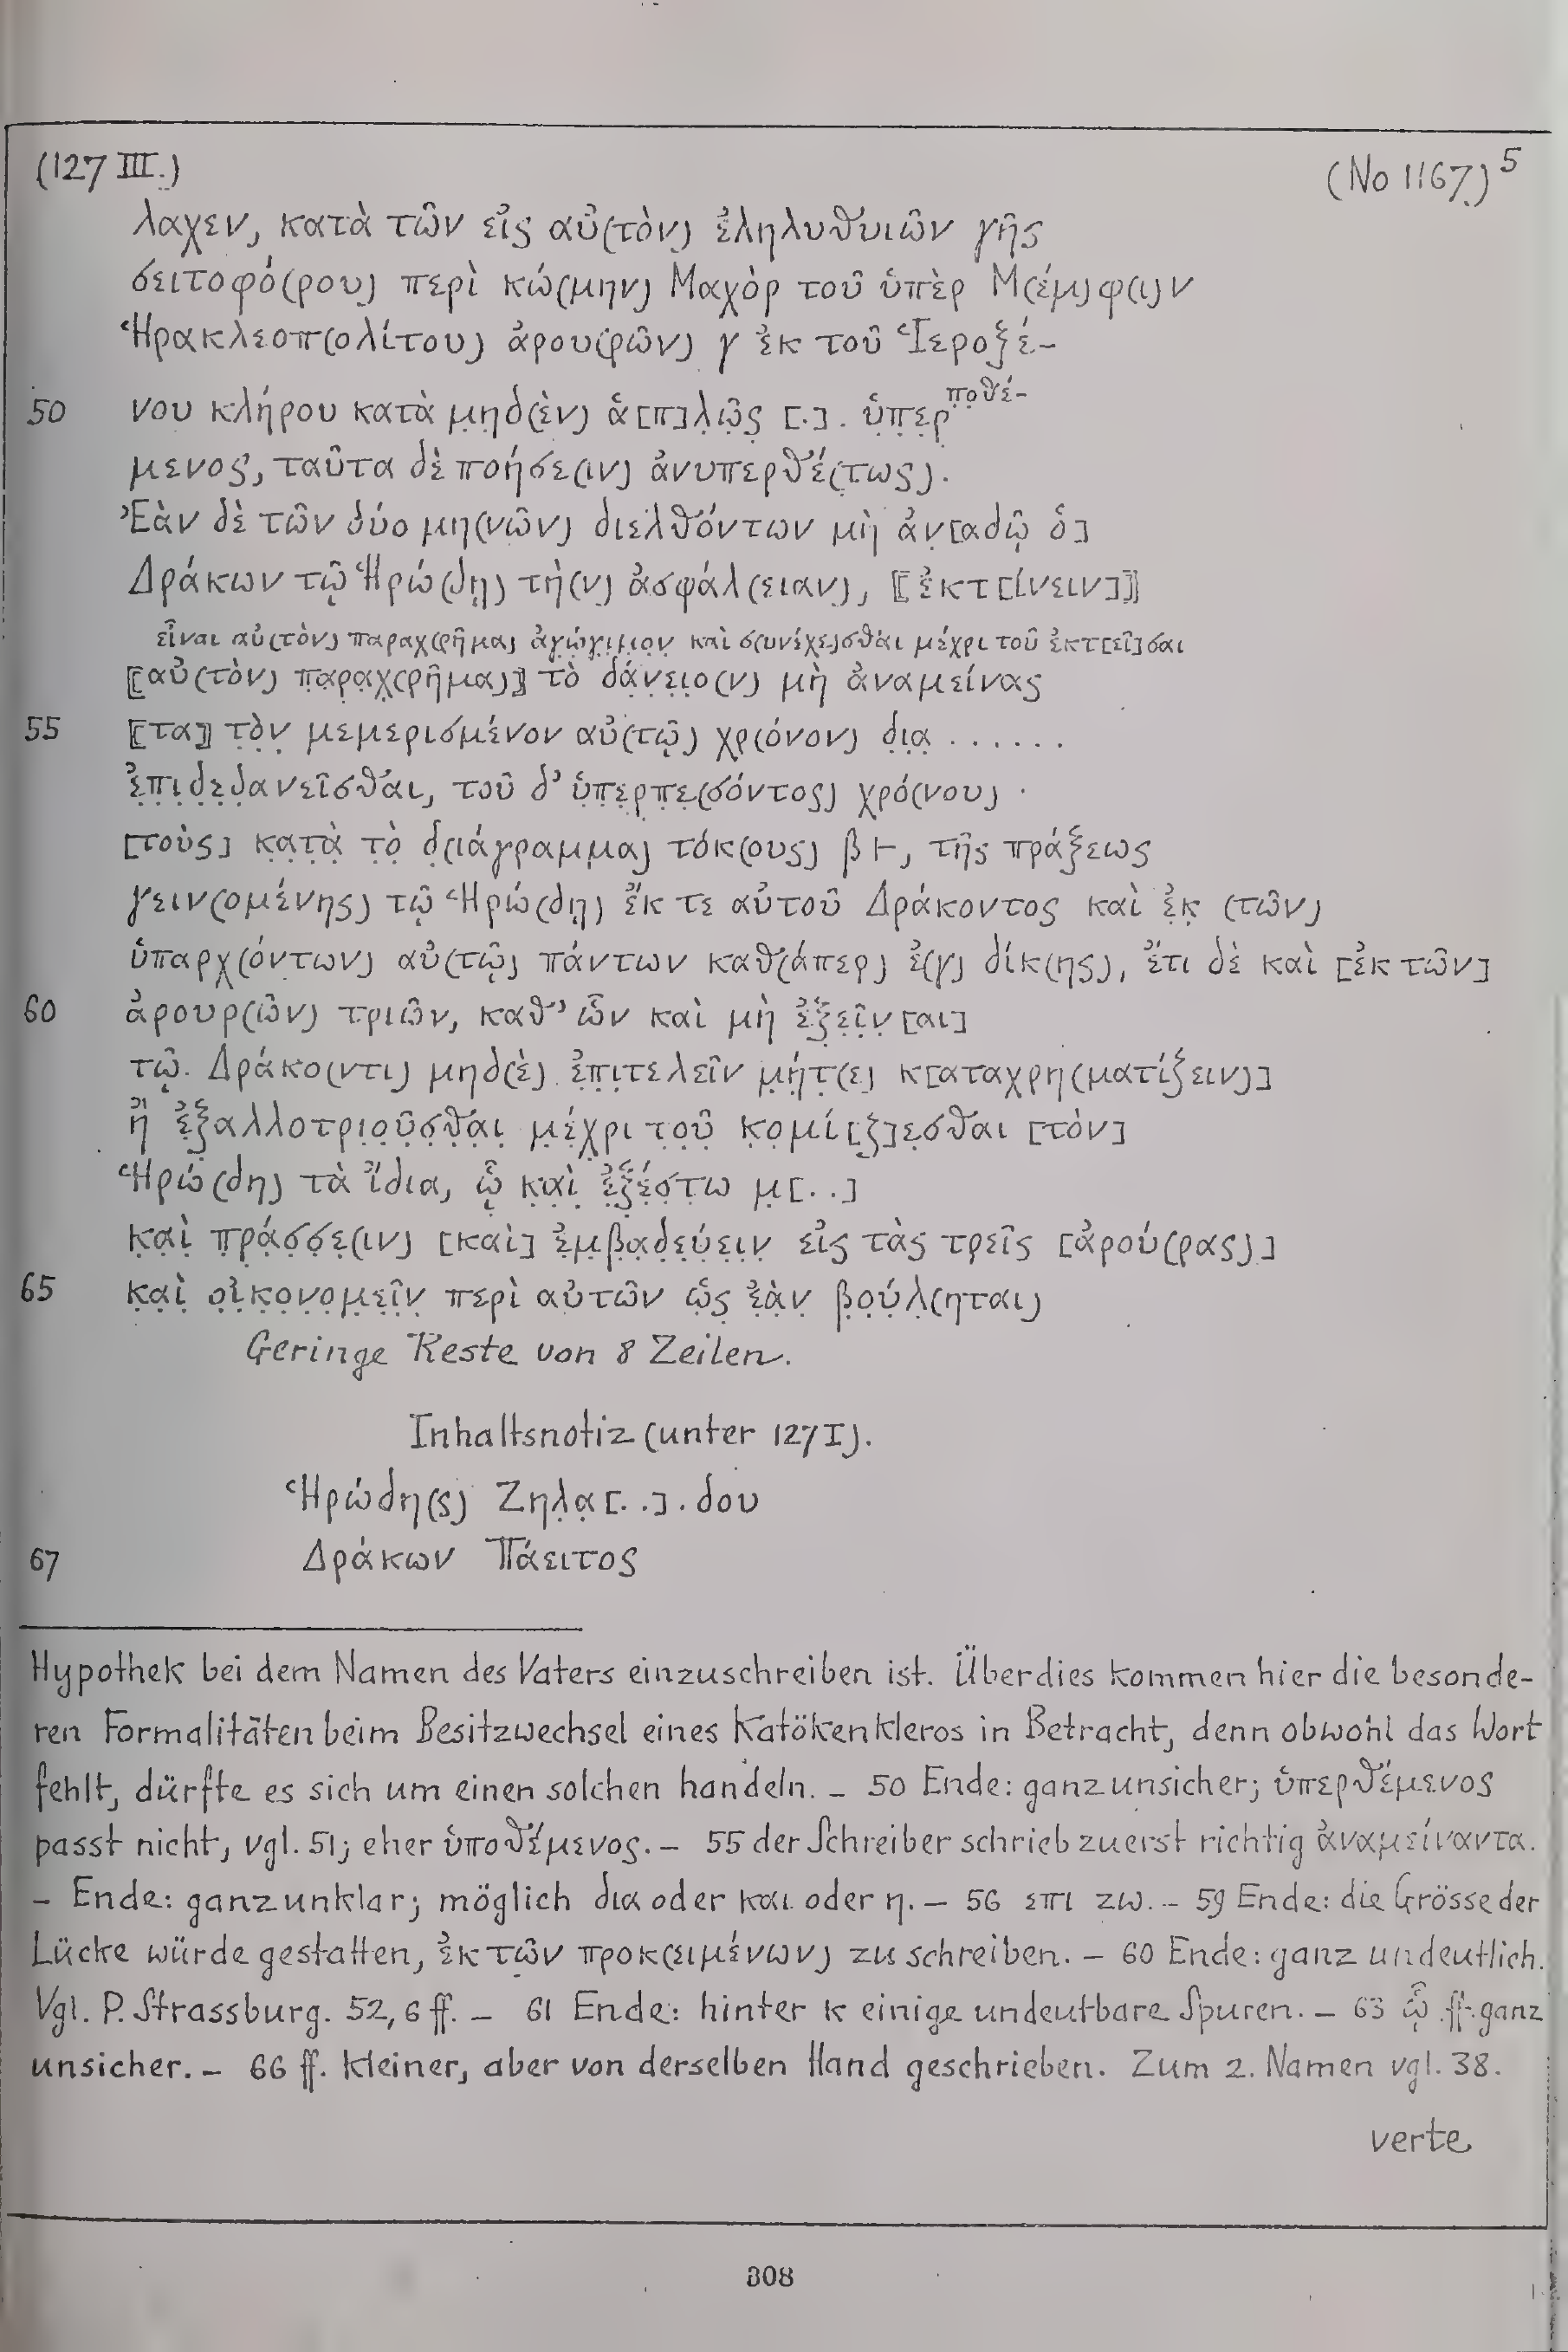 (127 III.)
(No 1167) 5
λαχεν, κατὰ τῶν εἰς αὐ(τὸν) ἐληλυθυιῶν γῆς
σειτοφό(ρου) περὶ κώ(μην) Μαχὸρ τοῦ ὑπὲρ Μ(έμ)φ(ι)ν
Ἡρακλεοπ(ολίτου) ἀρου(ρῶν) γ ἐκ τοῦ Ἱεροξέ-
ποθέ-
50 νου κλήρου κατὰ μ̣η̣δ(ὲν) ἁ[π]λ̣ῶ̣ς̣ [.] . ὑ̣π̣ε̣ρ̣
μενος, ταῦτα δὲ ποήσε(ιν) ἀνυπερθέ(τως).
Ἐὰν δὲ τῶν δύο μη(νῶν) διελθόντων μὴ ἀν̣[αδῷ ὁ]
Δράκων τῷ Ἡρώ(δῃ) τὴ(ν) ἀσφάλ(ειαν), ⟦ἐκτ[ίνειν]⟧
εἶναι αὐ(τὸν) παραχ(ρῆμα) ἀγ̣ώ̣γ̣ι̣μ̣ο̣ν̣ καὶ σ(υνέχε)σθαι μέχρι τοῦ ἐκτ[εῖ]σαι
⟦αὐ(τὸν) π̣α̣ρ̣α̣χ̣(ρῆμα)⟧ τὸ δά̣ν̣ε̣ι̣ο(ν) μὴ ἀναμείνας
55 ⟦τα⟧ τ̣ὸ̣ν̣ μεμερισμένον αὐ(τῷ) χρ(όνον) δ̣ι̣α̣ . . . . . .
ἐ̣π̣ι̣δ̣ε̣δ̣ανεῖσθαι, τοῦ δ’ ὑ̣π̣ε̣ρ̣π̣ε̣(σόντος) χρό(νου) ·
[τοὺς] κ̣α̣τ̣ὰ̣ τ̣ὸ̣ δ̣(ιάγραμμα) τόκ(ους) β 𐅂, τῆς πράξεως
γειν(ομένης) τῷ Ἡρώ(δῃ) ἔκ τε αὐτοῦ Δράκοντος καὶ ἐ̣κ̣ (τῶν)
ὑπαρχ(όντων) αὐ(τῷ) πάντων καθ(άπερ) ἐ(γ) δίκ(ης), ἔτι δὲ καὶ [ἐκ τῶν]
60 ἀρουρ(ῶν) τριῶν, καθ’ ὧν καὶ μὴ ἐ̣ξ̣ε̣ῖ̣ν̣[αι]
τῷ. Δράκο(ντι) μηδ(ὲ) ἐ̣π̣ι̣τελεῖν μ̣ή̣τ̣(ε) κ[αταχρη(ματίζειν)]
ἢ ἐ̣ξ̣αλλοτρι̣ο̣ῦ̣σ̣θ̣α̣ι̣ μ̣έ̣χ̣ρι τ̣ο̣ῦ̣ κ̣ο̣μί[ζ]ε̣σθαι [τὸν]
Ἡρώ(δη) τὰ ἴδια, ᾧ κ̣α̣ὶ̣ ἐ̣ξ̣έ̣σ̣τ̣ω μ̣[. .]
κ̣α̣ὶ̣ π̣ρ̣ά̣σ̣σ̣ε̣(ιν) [καὶ] ἐ̣μ̣β̣α̣δ̣ε̣ύ̣ε̣ι̣ν̣ εἰς τὰς τρεῖς [ἀρού(ρας)]
65 κ̣α̣ὶ̣ ο̣ἰ̣κ̣ο̣ν̣ο̣μ̣ε̣ῖ̣ν̣ περὶ αὐτῶν ὡ̣ς̣ ἐ̣ὰ̣ν̣ β̣ο̣ύ̣λ̣(ηται)
Geringe Reste von 8 Zeilen.
Inhaltsnotiz (unter 127 I).
Ἡρώδη(ς) Ζηλ̣α̣[. .] . δου
67 Δράκων Πάειτος
Hypothek bei dem Namen des Vaters einzuschreiben ist. Überdies kommen hier die besonde-
ren Formalitäten beim Besitzwechsel eines Katökenkleros in Betracht, denn obwohl das Wort
fehlt, dürfte es sich um einen solchen handeln. – 50 Ende: ganz unsicher; ὑπερθέμενος
passt nicht, vgl. 51; eher ὑποθέμενος. – 55 der Schreiber schrieb zuerst richtig ἀναμείναντα.
– Ende: ganz unklar; möglich δια oder και oder η. – 56 επι ζω. – 59 Ende: die Grösse der
Lücke würde gestatten, ἐκ τῶν προκ(ειμένων) zu schreiben. – 60 Ende: ganz undeutlich.
Vgl. P. Strassburg. 52, 6 ff. – 61 Ende: hinter κ einige undeutbare Spuren. – 63 ᾧ ff. ganz
unsicher. – 66 ff. kleiner, aber von derselben Hand geschrieben. Zum 2. Namen vgl. 38.
verte
308